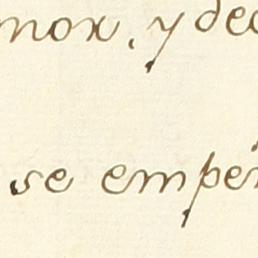 mox, y dec
se empe